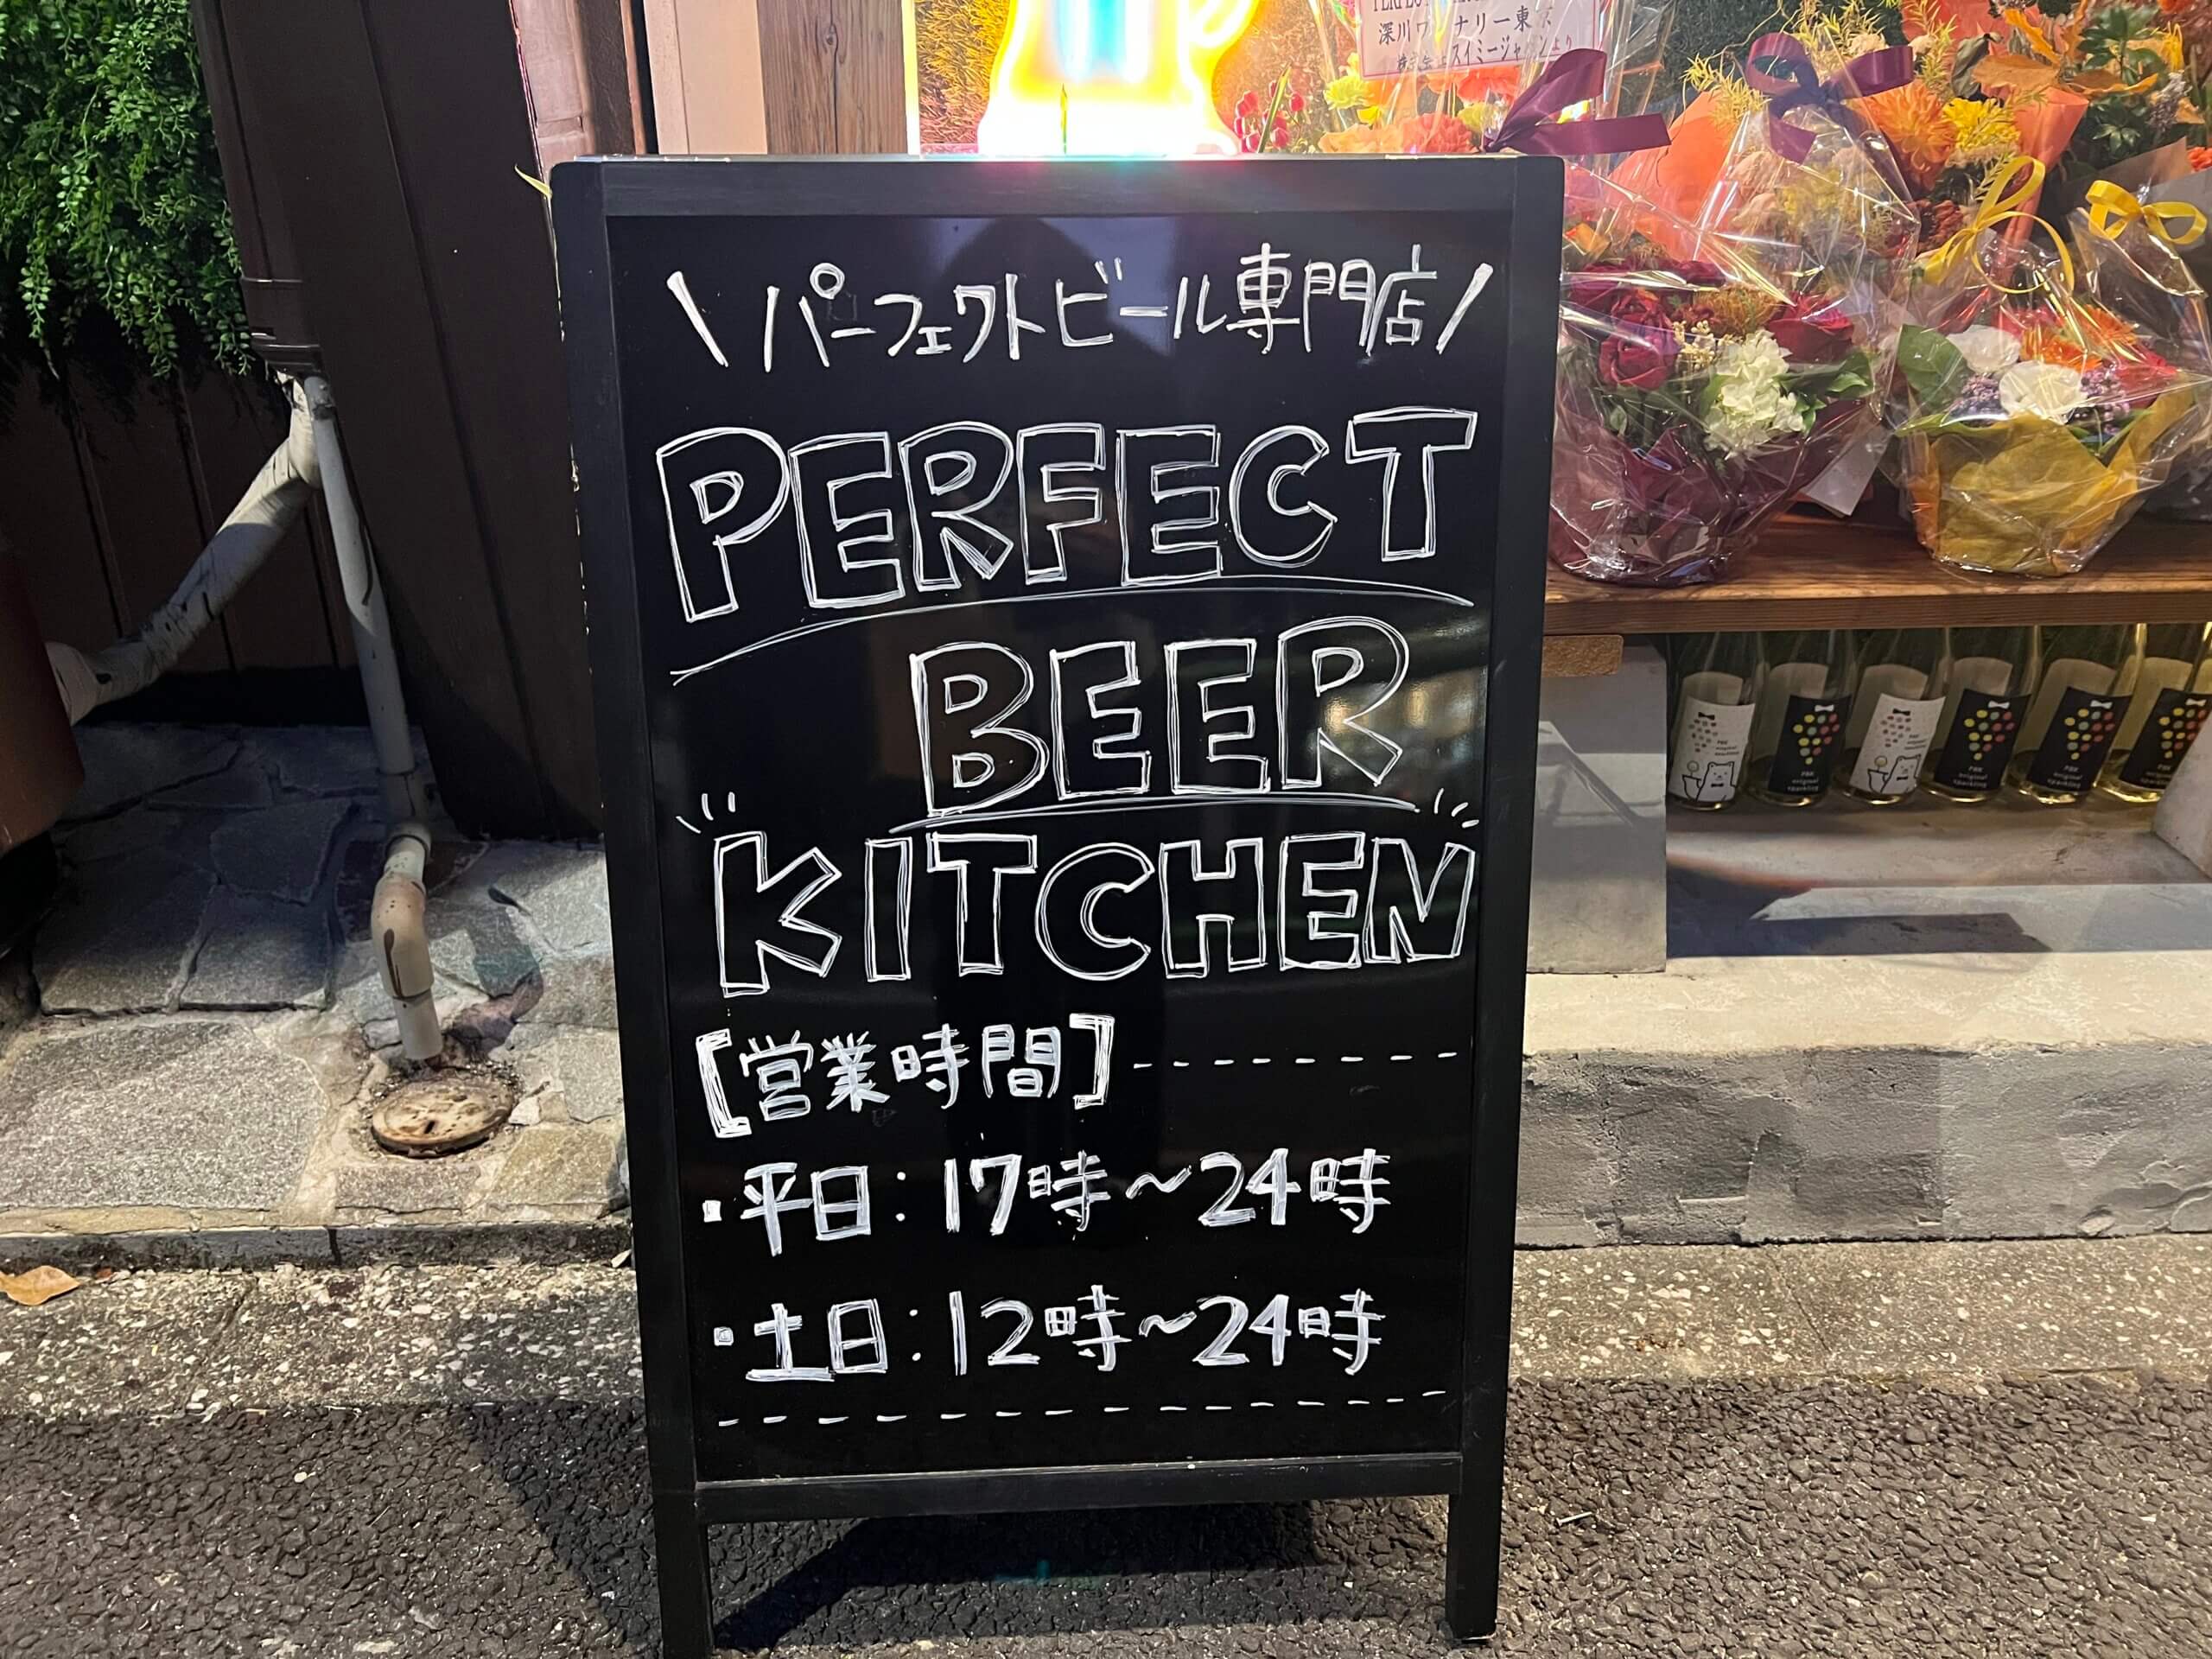 深川ワイナリー東京
\ パーフェクトビール専門店 /
PERFECT
BEER
KITCHEN
[営業時間]
・平日：17時～24時
・土日：12時～24時